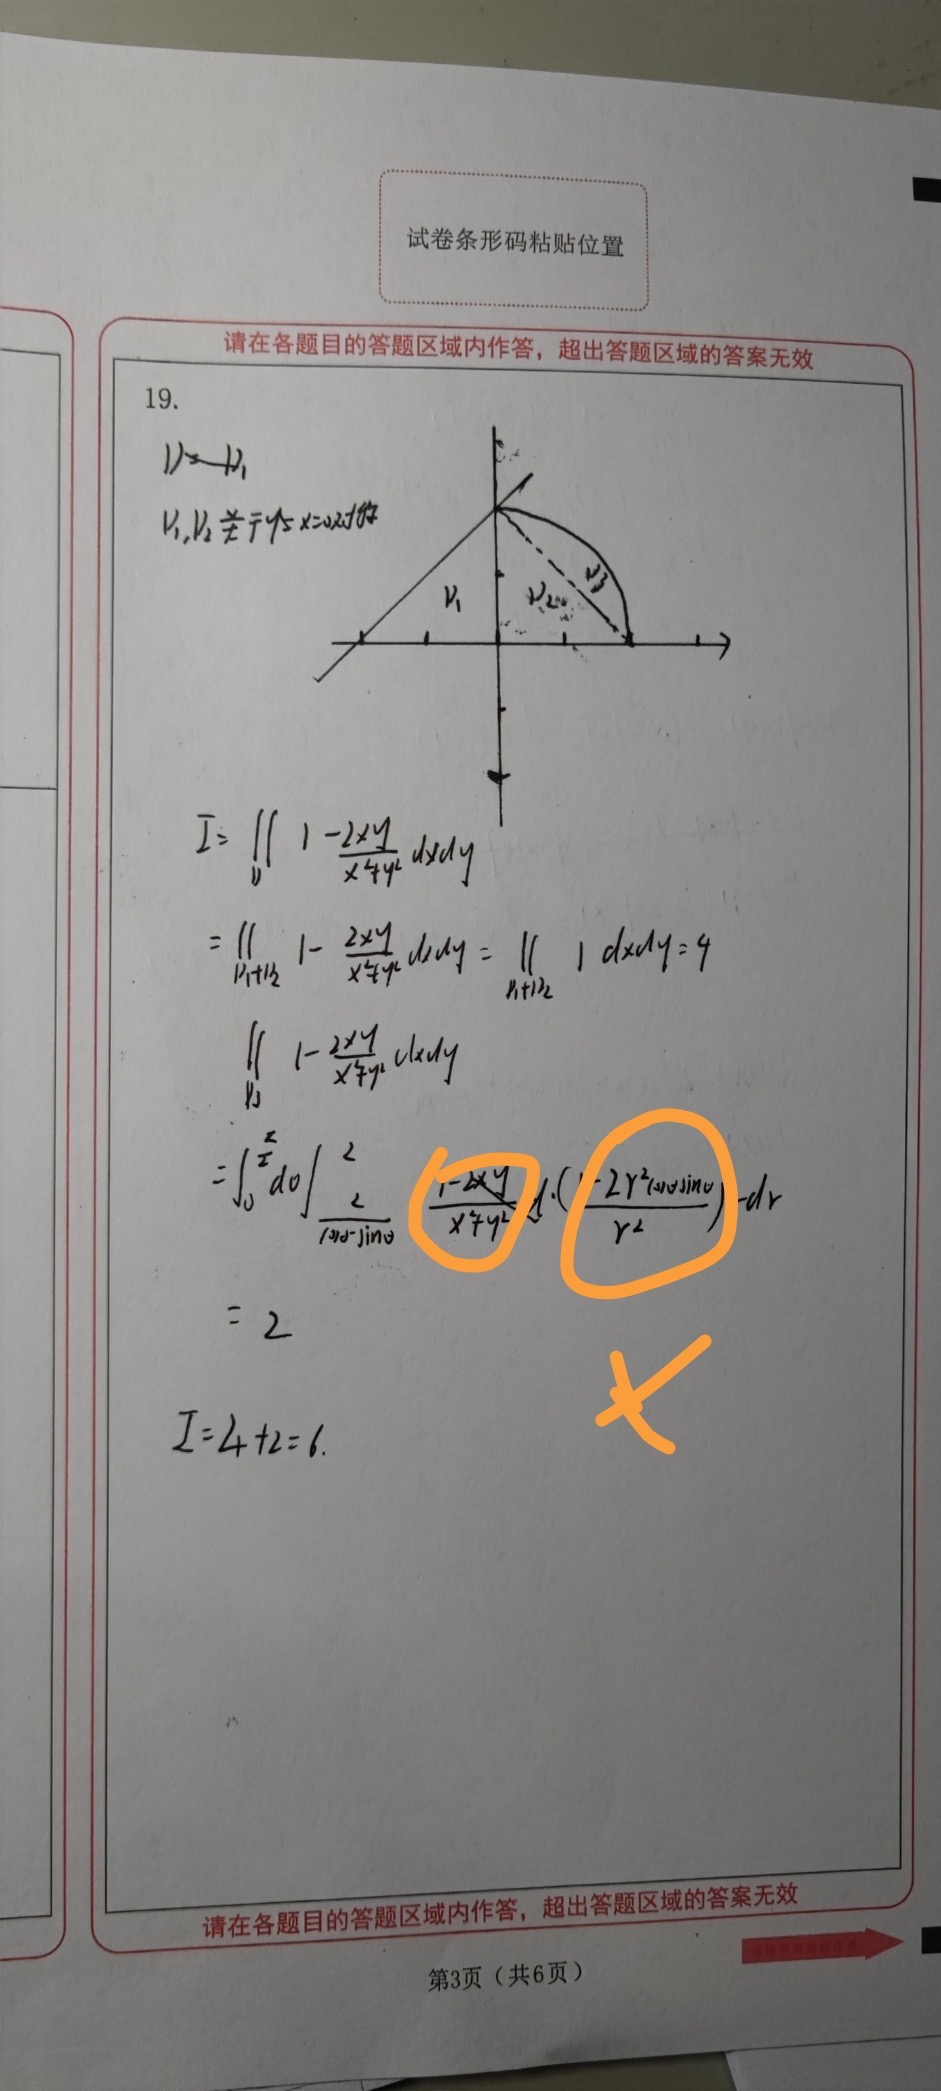 试卷条形码粘贴位置
请在各题目的答题区域内作答，超出答题区域的答案无效
19.
D=D₁
D₁,D₂关于y与x=0对称
D₁ D₂ D₃
I = ∬_D 1 - 2xy/(x²+y²) dxdy
= ∬_{D₁+D₂} 1 - 2xy/(x²+y²) dxdy = ∬_{D₁+D₂} 1 dxdy = 4
∬_{D₃} 1 - 2xy/(x²+y²) dxdy
= ∫₀^{π/2} dθ ∫_{2/(cosθ-sinθ)}^{2} (1-2xy)/(x²+y²) ·(1-2r²cosθsinθ/r²) dr
= 2
I=4+2=6.
请在各题目的答题区域内作答，超出答题区域的答案无效
第3页（共6页）